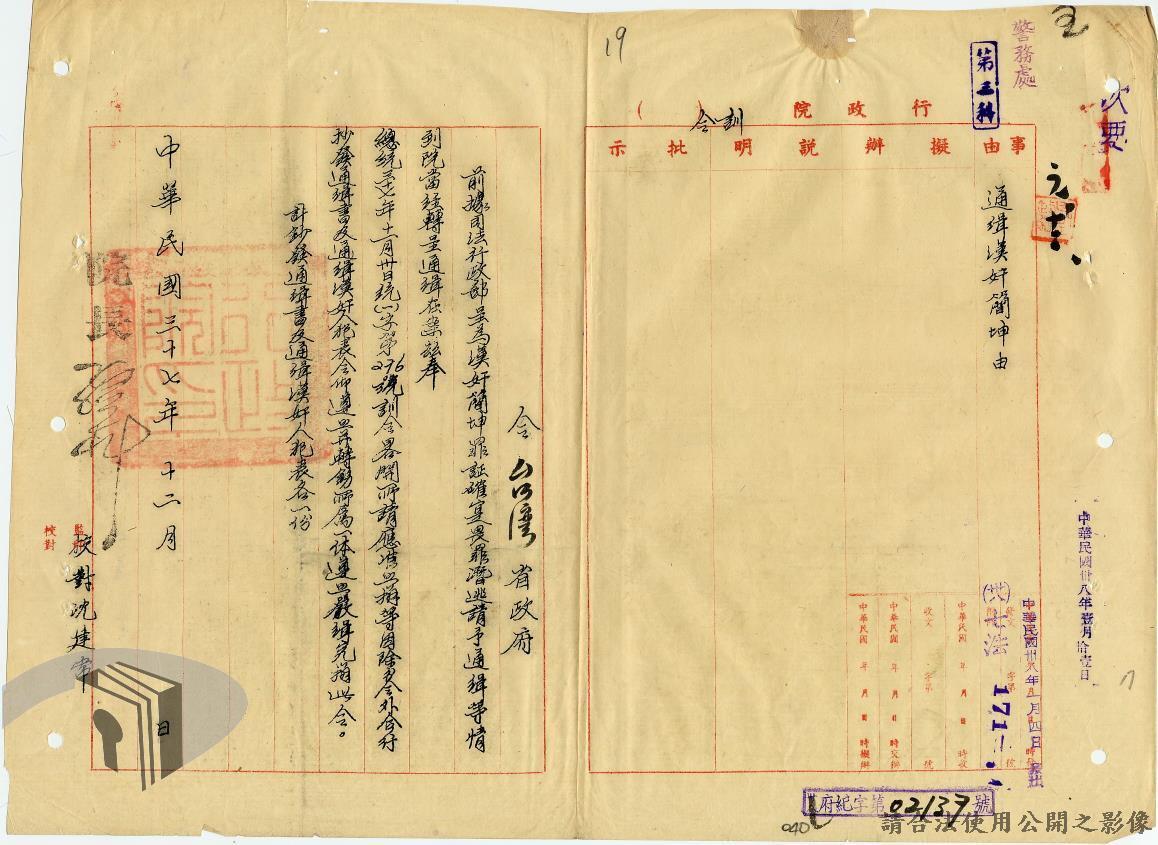 次要
警務處
第三科
19
行政院
(訓令)
事由
擬辦
說明
批示
通緝漢奸簡坤由
中華民國卅八年壹月拾壹日
中華民國卅八年一月四日
發文
字第
號
七法
171
中華民國 年 月 日 時收
收文 字第 號
中華民國 年 月 日 時交辦
中華民國 年 月 日 時擬辦
府紀字第02137號
040
令台灣省政府
前據司法行政部呈為漢奸簡坤罪証確實畏罪潛逃請予通緝等情
到院當經轉呈通緝在案茲奉
總統三十七年十一月卅日統(一)字第296號訓令畧開所請應准照辦等因除分令外合行
抄發通緝書及通緝漢奸人犯表令仰遵照并轉飭所屬一體遵照嚴緝究辦此令。
計鈔發通緝書及通緝漢奸人犯表各一份
中華民國三十七年十二月 日
院長
監印
校對
校對沈建常
請合法使用公開之影像